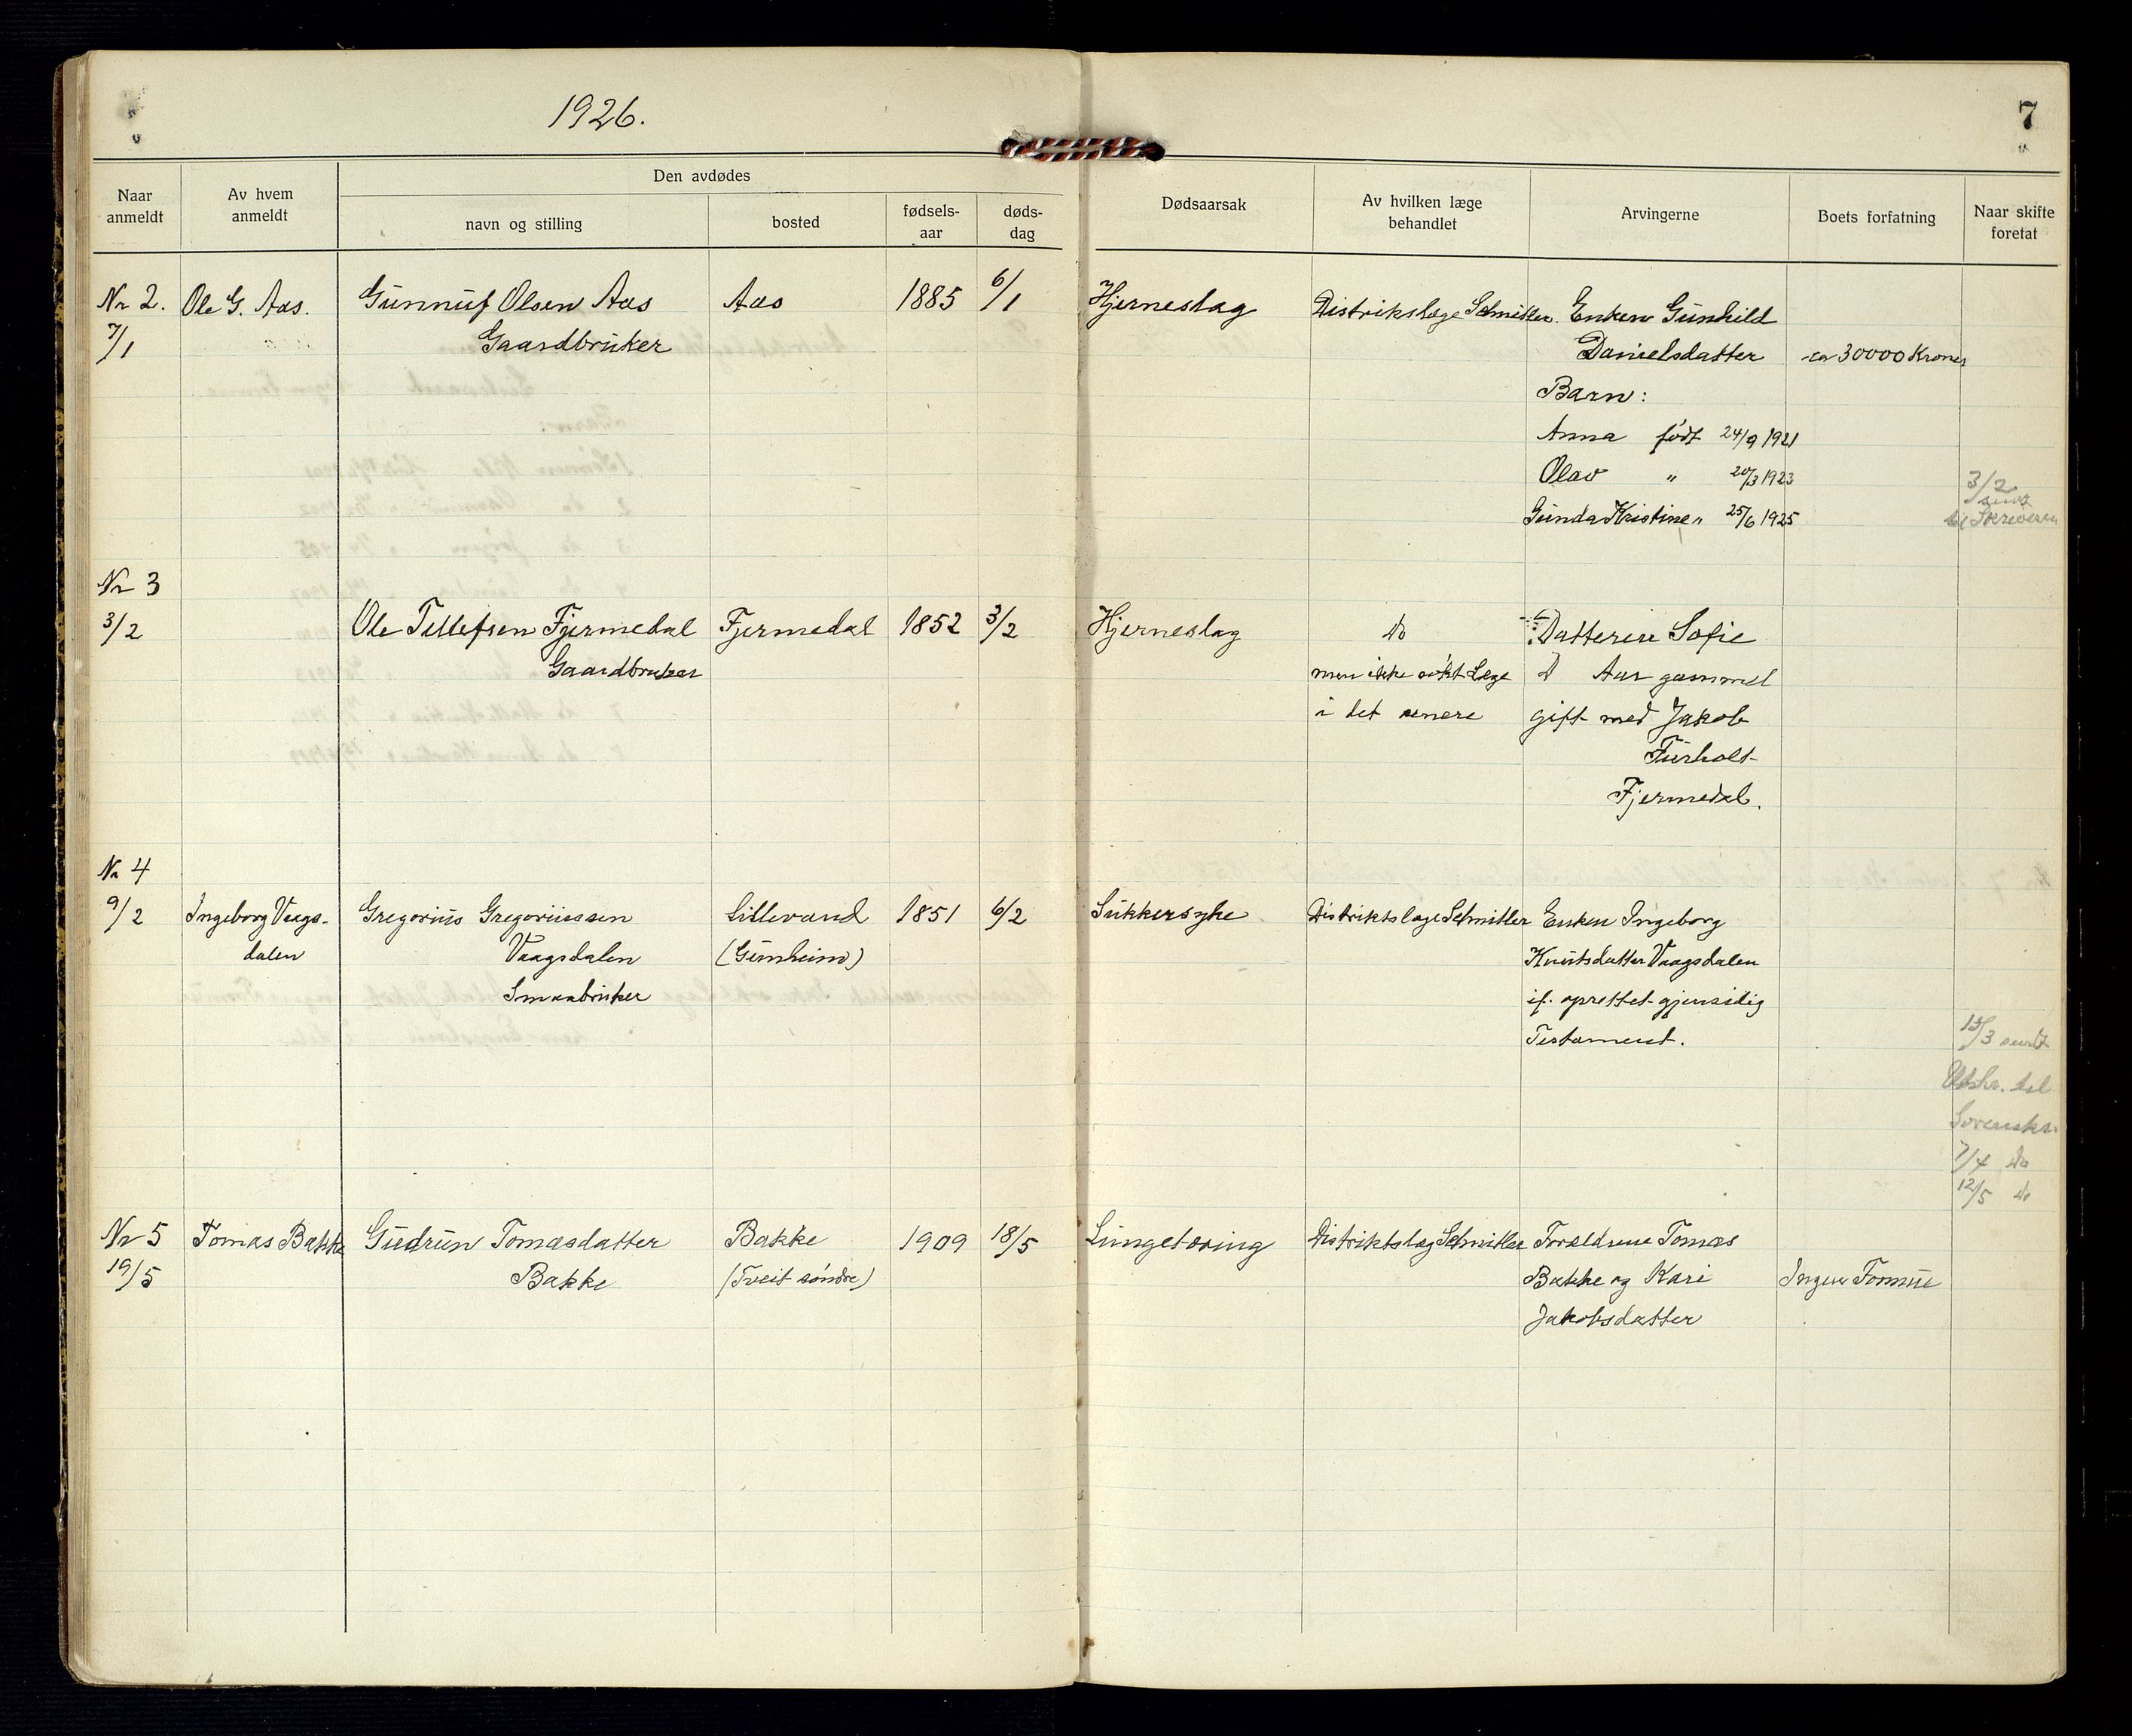 1926.
7
Naar anmeldt
Av hvem anmeldt
Den avdødes
navn og stilling
bosted
fødsels-aar
døds-dag
Dødsaarsak
Av hvilken læge behandlet
Arvingerne
Boets forfatning
Naar skifte foretat
Nr 2. Ole G. Aas. Gunnuf Olsen Aas Aas 1885 6/1 Hjerneslag Distrikslæge Schmitler. Enken Gunhild
7/1 Gaardbruker Danielsdatter ca 30000 Kroner
Barn:
Anna født 24/9 1921
Olav " 20/3 1923 3/2
sendt
Gunda Kristine " 25/6 1925 til Skriveren
Nr 3
3/2 Ole Tellefsen Fjermedal Fjermedal 1852 3/2 Hjerneslag do Datteren Sofie
Gaardbruker men ikke søkt Læge Aar gammel
i det senere gift med Jakob
Furholt-
Fjermedal.
Nr 4
9/2 Ingeborg Vaags- Gregorius Gregoriussen Lillevand 1851 6/2 Sukkersyke Distriktslæge Schmitler Enken Ingeborg
dalen Vaagsdalen (Gunheim) Knutsdatter Vaagsdalen
Smaabruker if. oprettet gjensidig
Testament. 15/3 sendt
Utskr. til
Sorensks.
7/4 do
12/5 do
Nr 5 Tomas Bakke Gudrun Tomasdatter Bakke 1909 18/5 Lungetæring Distriktslæg Schmitler Foreldrene Tomas
19/5 Bakke (Tveit søndre) Bakke og Kari Ingen Formue
Jakobsdatter